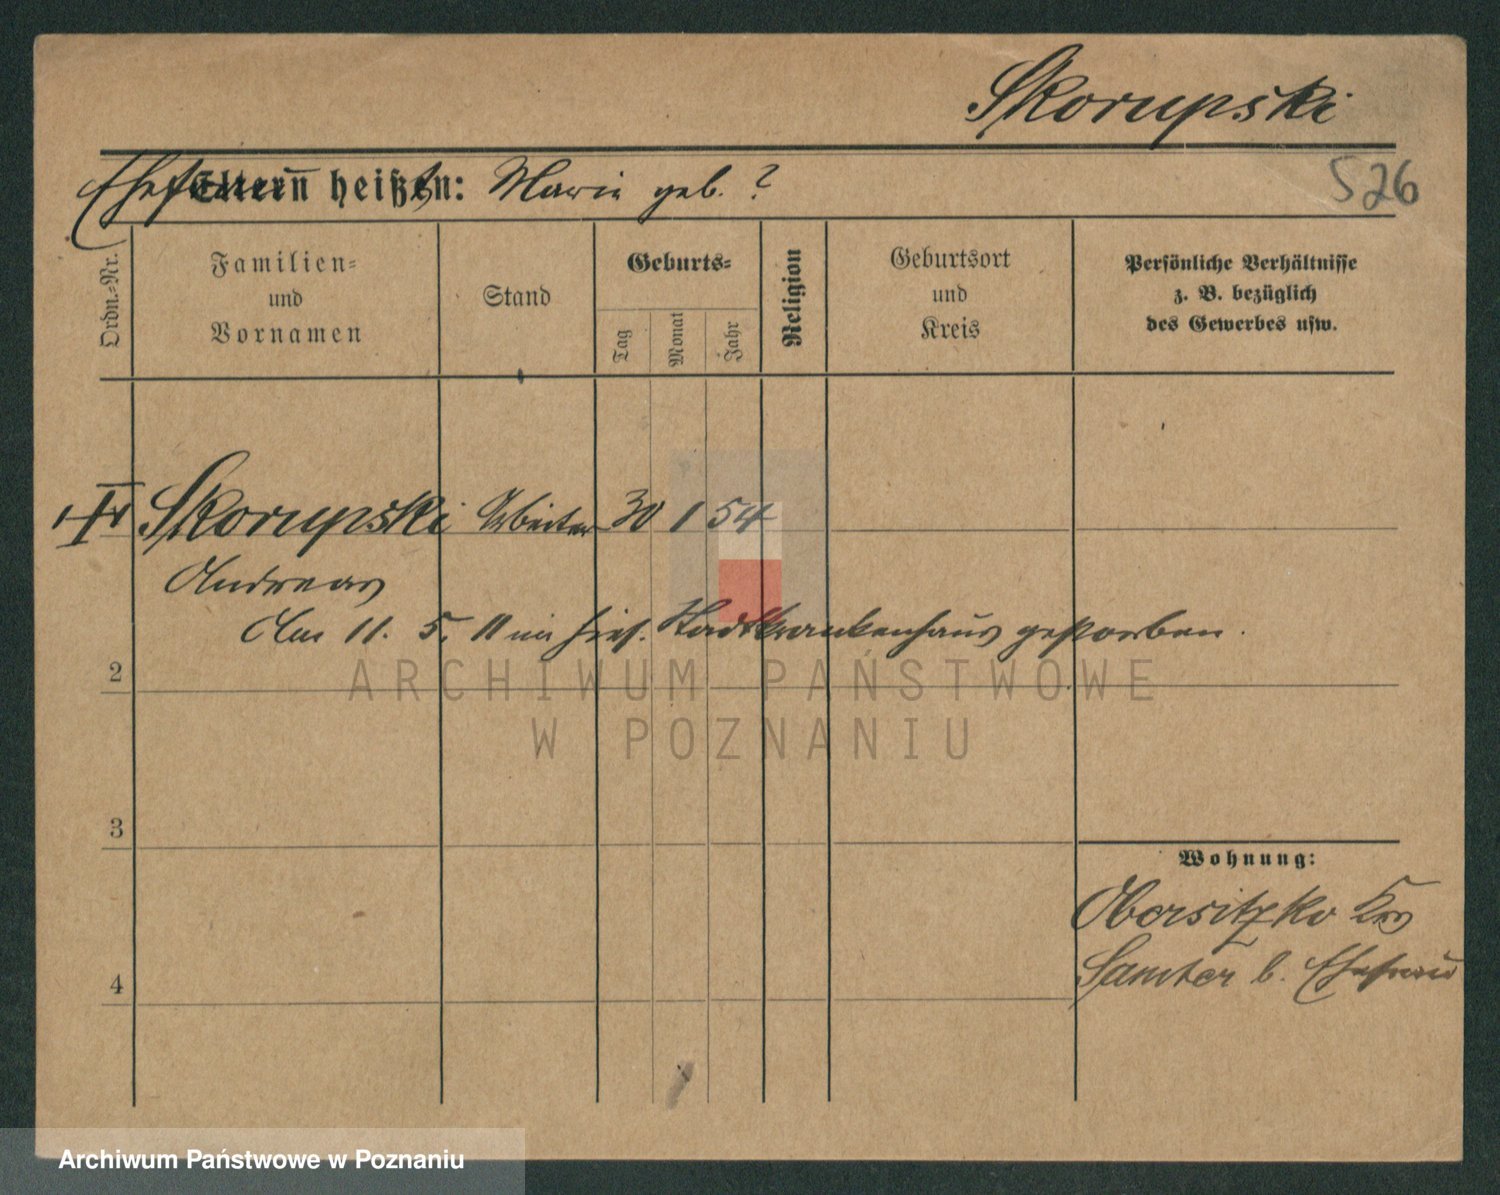 Skorupski
526
Ehefrau heißt: Marie geb. ?
Ordn.=Nr.
Familien=
und
Vornamen
Stand
Geburts=
Tag
Monat
Jahr
Religion
Geburtsort
und
Kreis
Persönliche Verhältnisse
z. B. bezüglich
des Gewerbes usw.
Skorupski Arbeiter 30 1 54
Andreas
Am 11. 5. 11 im hies. Stadtkrankenhaus gestorben.
2
ARCHIWUM PAŃSTWOWE
W POZNANIU
3
Wohnung:
Obersitzko Krs
Samter b. Ehefrau
4
Archiwum Państwowe w Poznaniu